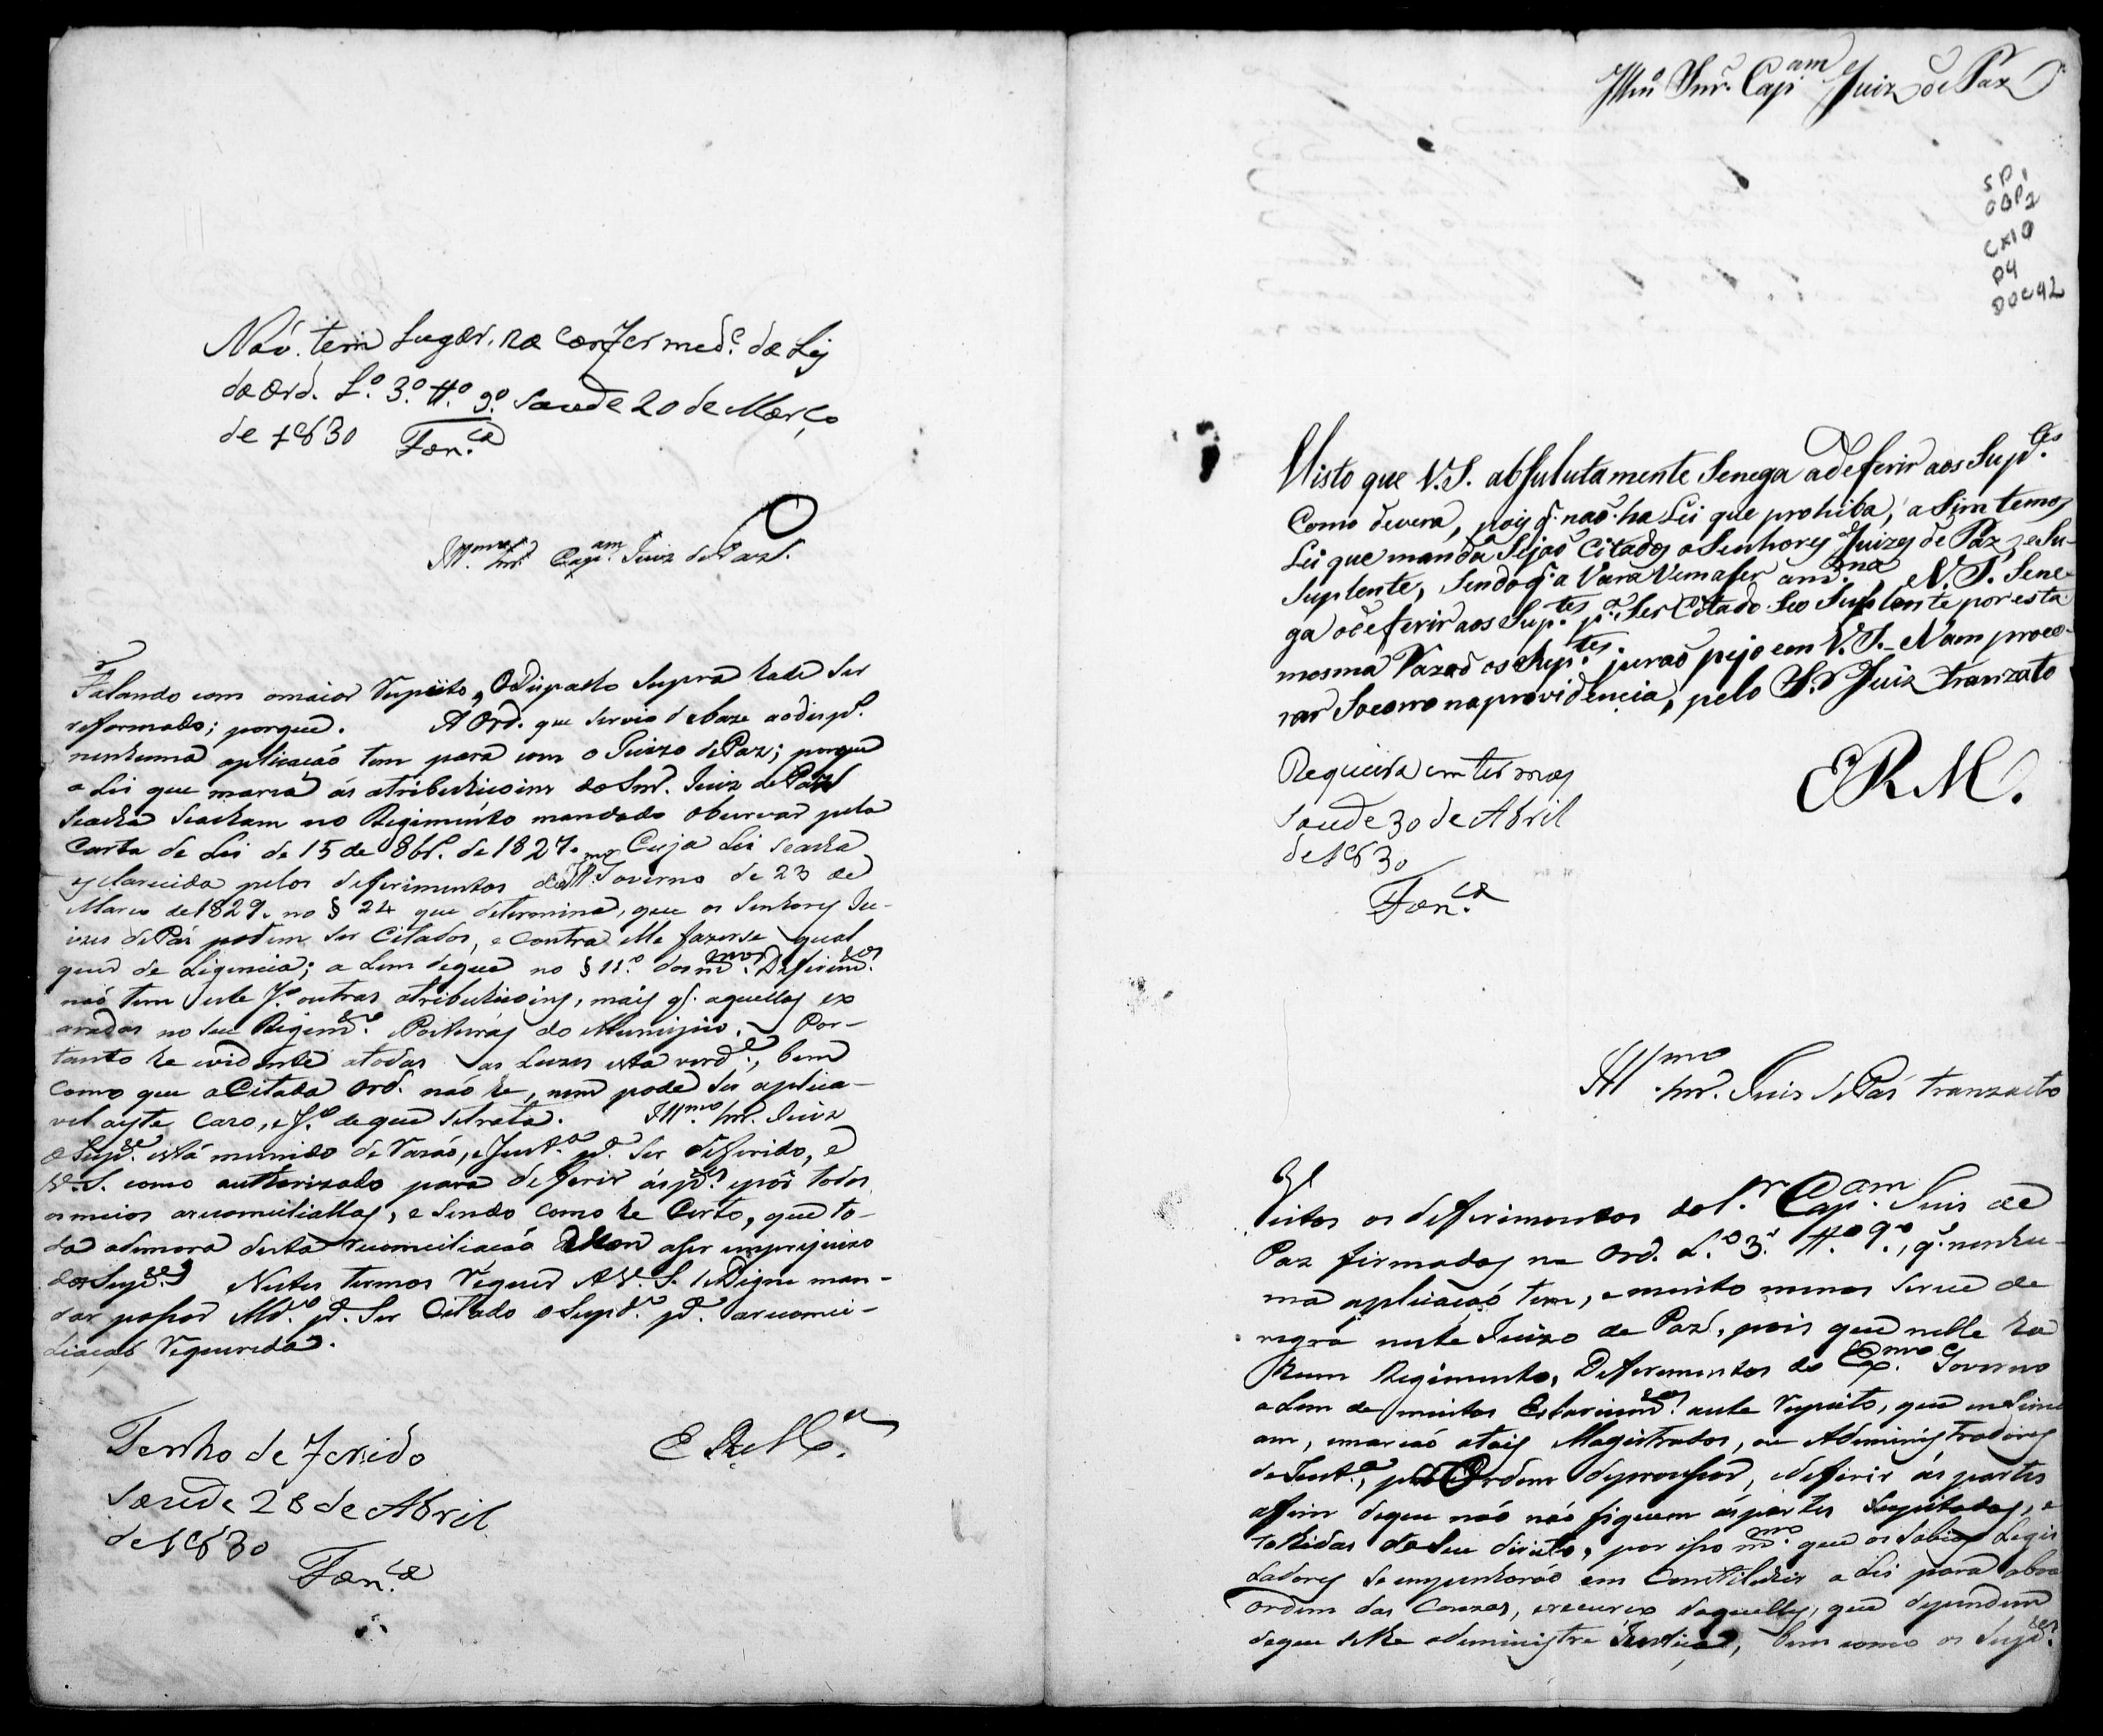 Náo. tem Lugar, na conformed.e da Ley
da Ord. L.o 3.o tt.o 9.o Saude 20 de Março
de 1830 Fon.ca
Ill.mo Snr. Cap.am Juiz de Paz.
Falando com o maior respeito, O dispacho supra hade ser
reformado; porque. A Ord. que servio de baze ao disp.o
nenhuma aplicaçaõ tem para com o Juizo de Paz; porque
a Lei que marca as atribuhicoins do Snr. Juiz de Paz
seacha seacham no Regimento mandado observar pela
Carta de Lei de 15 de 8br.o de 1827. Cuja Lei seacha
esclarecida pelos deferimentos do Ex.mo Governo de 23 de
Março de 1829. no § 24 que determina, que os Senhores Ju-
izes de Páz podem ser Citados, e contra elle fazerse qual
quer de Ligencia; a Lem deque no § 11.o dos m.mos Deferim.tos
naó tem este J.o outras atribuhicoins, mais q. aquellas ex
aradas no seu Regim.to e Posturas do Municipio. Por-
tanto he evidente atodas as Luzes esta verd.e, bem
como que a Citada Ord. náo he, nem pode ser aplica-
vel aeste Cazo, e J.o deque setrata. Ill.mo Snr. Juiz
o Sup.e está munido de Razaó, e Just.a p.a ser deferido, e
V.S. como authorizado para deferir ás p.tes e pôr todos
os meios areconciliallas, e sendo como he Certo, que to-
da ademora desta reconciliacaó vem aser emprejuizo
dos Sup.es Nestes termos Requer A V.S. se Digne man-
dar passar M.do p.a Ser Citado o Sup.do p.a areconci-
liacaó Requerida.
E R M.ce
Tenho deferido
Saude 28 de Abril
de 1830
Fon.ca
Illm.o Snr. Cap.am Juiz de Paz
SP1
OBP2
CX10
D4
DOC42
Visto que V.S. absulutamente Senega adeferir aos Sup.tes
Como devera, pois q. naõ ha Lei que prohiba, a Sim temos
Lei que manda Sejaõ Citados os Senhores Juizes de Paz, e Su-
Suplente, Sendo q. a Vara Vem a ser am.ma, e V.S. Sene-
ga odeferir aos Sup.tes p.a Ser Citado Seo Suplente por esta
mesma Razaõ os Sup.tes juraõ pejo em V.S. e Vam procu-
rar Socorro na providencia, pelo S.r Juiz tranzato
E R M.
Requeira em termos
Saude 30 de Abril
de 1830
Fon.ca
Ill.mo Snr. Juis de Pás tranzacto
Vistos os deferimentos do S.r Cap.am Juis de
Paz firmados na Ord. L.o 3.o tt.o 9.o, q. nenhu-
ma aplicaçaó tem, e muito menos serve de
regra neste Juizo de Paz, pois que nelle ha
hum Regimento, Deferementos do Ex.mo Governo
a Lem de muitos Esclarecim.tos aeste respeito, que
am, e marcaó atais Magistrados, ou Administradores
de Just.a, p.a Ordem deprocesar, e deferir ás partes
afim deque naó naó fiquem ás partes Sugeitadas, e
tolhidas do Seu direito, por isso m.mo que os Sabios Legis
Ladores se empenharaõ em Constituhir a Lei para aboa
Ordem das Couzas, e recurço daquelles, que dependem
deque selhe administre Justiça, bem como os Sup.tes